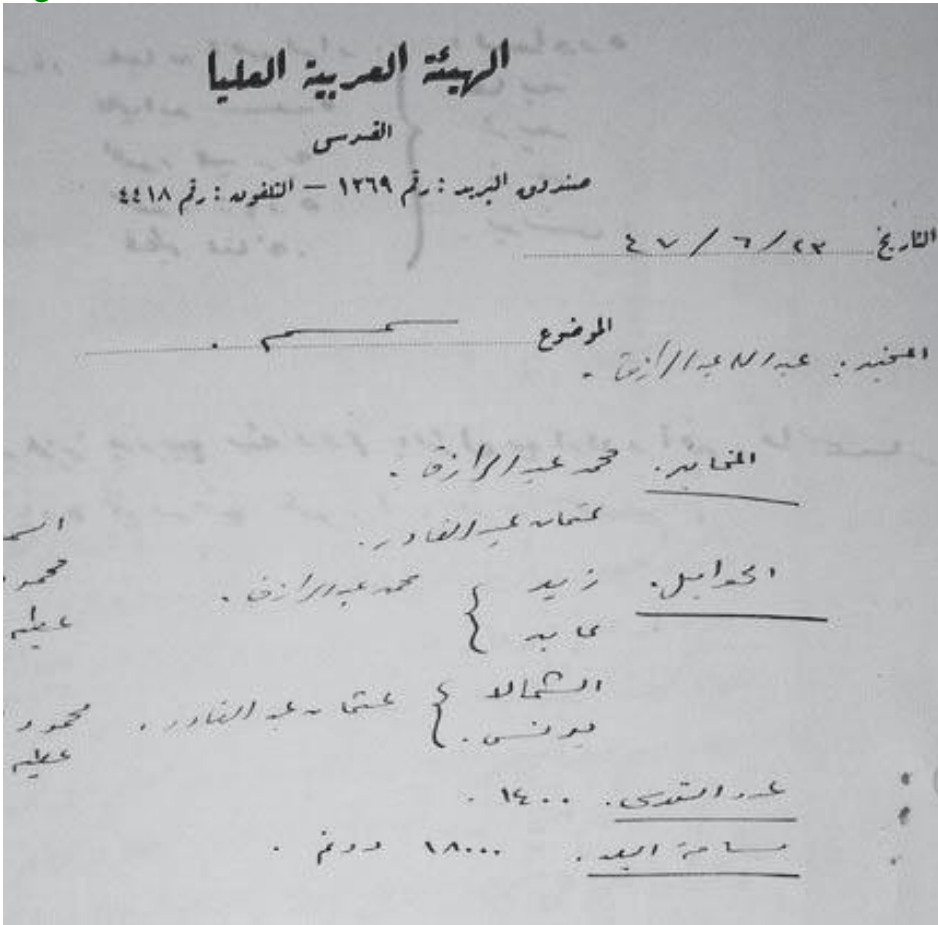 الهيئة العربية العليا
القدس
صندوق البريد : رقم ١٢٦٩ — التلفون : رقم ٤٤١٨
التاريخ ٢٣ / ٦ / ٤٧
الموضوع
عبد الله عبد الرازق .
المخاتير . محمد عبد الرازق .
عثمان عبد القادر .
الحمايل . زيد } محمد عبد الرازق .
عابد
محمد
عطيه
الشمالا } عثمان عبد القادر . محمود
يونس . عطيه
عدد النفوس . ١٤٠٠ .
مساحة البلد . ١٨٠٠٠ دونم .